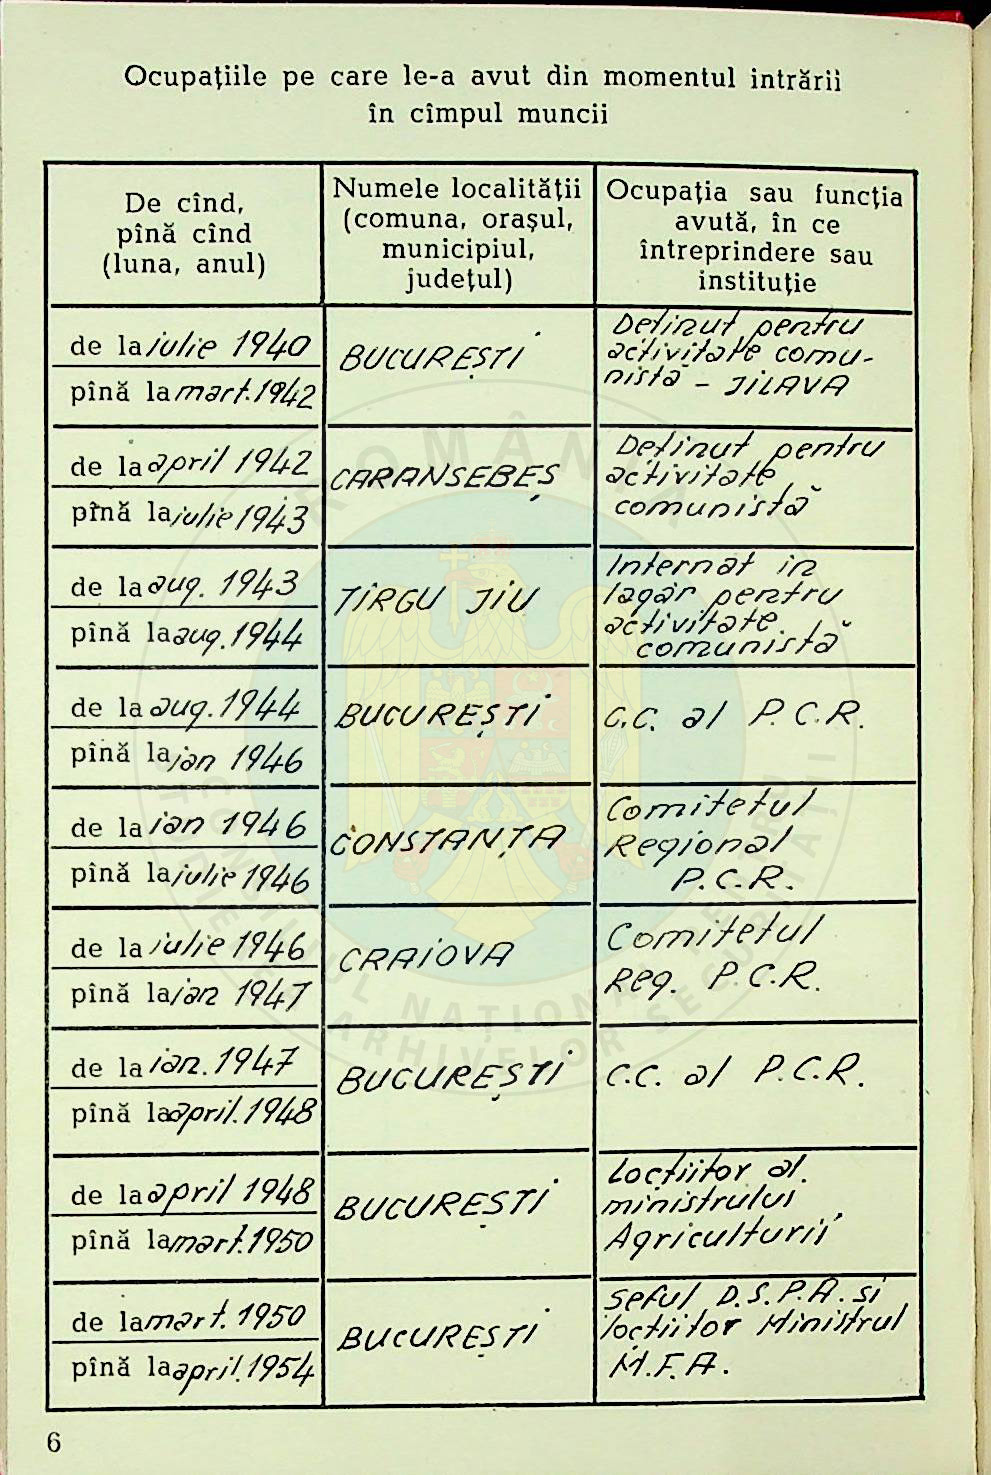 Ocupațiile pe care le-a avut din momentul intrării
în cîmpul muncii
De cînd,
pînă cînd
(luna, anul)
Numele localității
(comuna, orașul,
municipiul,
județul)
Ocupația sau funcția
avută, în ce
întreprindere sau
instituție
de la iulie 1940
pînă la mart. 1942
BUCUREȘTI
Deținut pentru
activitate comu-
nistă - JILAVA
de la april 1942
pînă la iulie 1943
CARANSEBEȘ
Deținut pentru
activitate
comunistă
de la aug. 1943
pînă la aug. 1944
TÎRGU JIU
Internat în
lagăr pentru
activitate
comunistă
de la aug. 1944
pînă la ian 1946
BUCUREȘTI
C.C. al P.C.R.
de la ian 1946
pînă la iulie 1946
CONSTANȚA
Comitetul
Regional
P.C.R.
de la iulie 1946
pînă la ian 1947
CRAIOVA
Comitetul
Reg. P.C.R.
de la ian. 1947
pînă la april. 1948
BUCUREȘTI
C.C. al P.C.R.
de la april 1948
pînă la mart. 1950
BUCUREȘTI
Locțiitor al
ministrului
Agriculturii
de la mart. 1950
pînă la april. 1954
BUCUREȘTI
Șeful D.S.P.A. și
locțiitor Ministrul
M.F.A.
6
ROMÂNIA
CONSILIUL NAȚIONAL PENTRU
STUDIEREA ARHIVELOR SECURITĂȚII